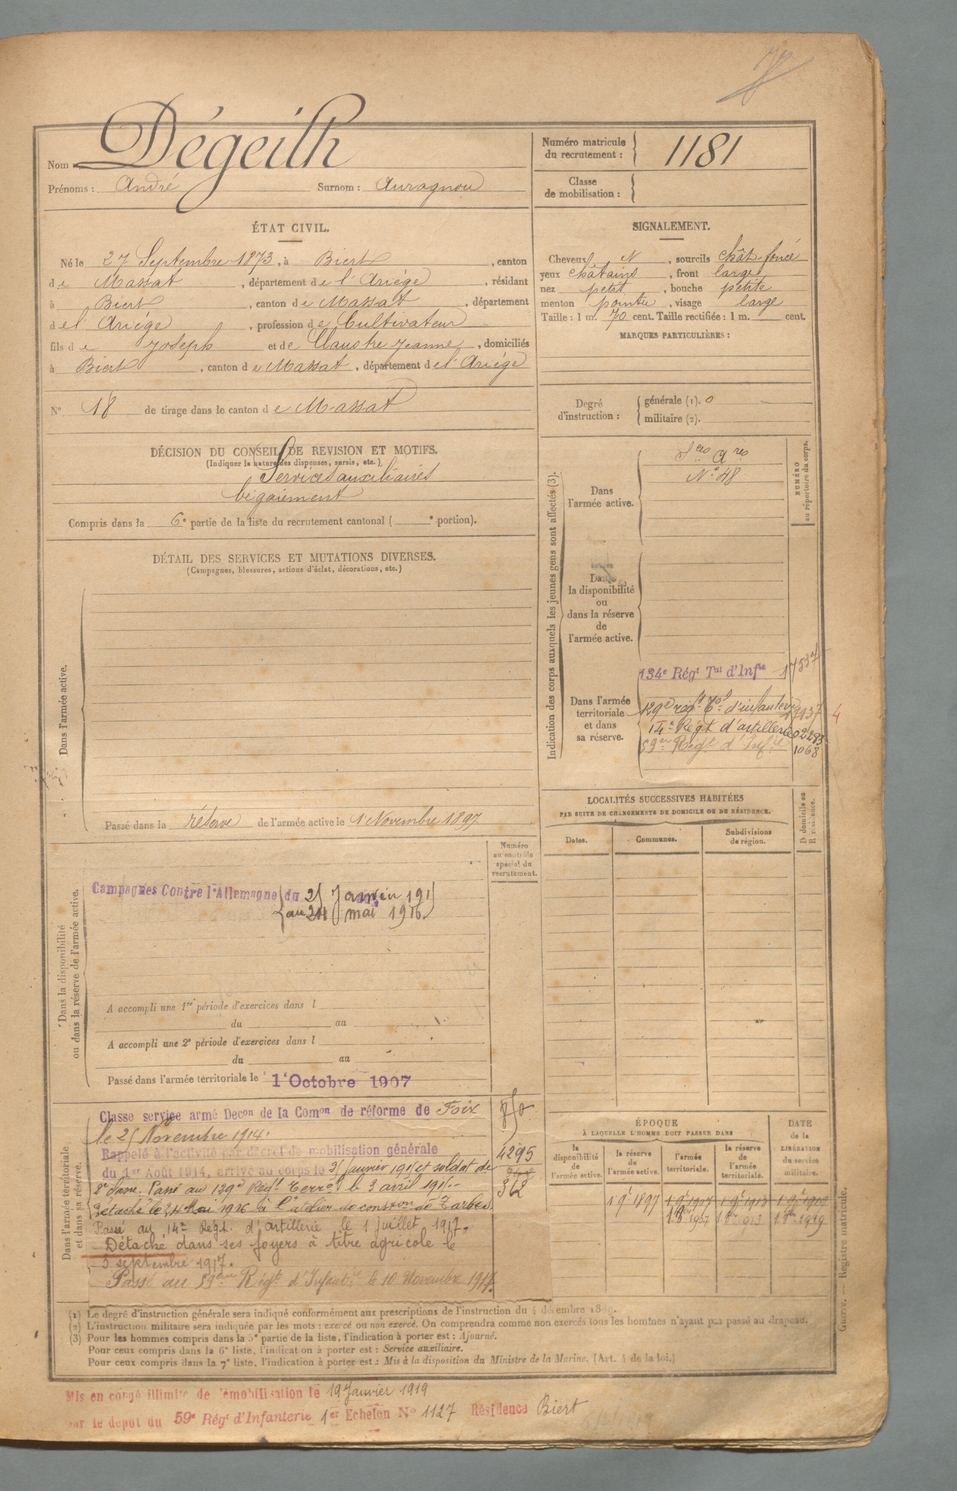 Nom Dégeilh
Prénoms : André Surnom : Auragnou
Numéro matricule
du recrutement : 1181
Classe
de mobilisation :
ÉTAT CIVIL.
Né le 27 Septembre 1873, à Biert, canton
de Massat, département de l'Ariége, résidant
à Biert, canton de Massat, département
de l'Ariége, profession de Cultivateur
fils de Joseph et de Claustre Jeanne, domiciliés
à Biert, canton de Massat, département de l'Ariége
N° 18 de tirage dans le canton de Massat
SIGNALEMENT.
Cheveux N, sourcils chât. foncé
yeux châtains, front large
nez petit, bouche petite
menton pointu, visage large
Taille : 1 m. 70 cent. Taille rectifiée : 1 m. cent.
MARQUES PARTICULIÈRES :
Degré
d'instruction :
générale (1). 0
militaire (2).
DÉCISION DU CONSEIL DE REVISION ET MOTIFS.
(Indiquer la nature des dispenses, sursis, etc.)
Services auxiliaires
bégaiement
Compris dans la 6e partie de la liste du recrutement cantonal ( e portion).
DÉTAIL DES SERVICES ET MUTATIONS DIVERSES.
(Campagnes, blessures, actions d'éclat, décorations, etc.)
Dans l'armée active.
Passé dans la réserve de l'armée active le 1 Novembre 1897
Indication des corps auxquels les jeunes gens sont affectés (3).
NUMÉRO
au répertoire du corps.
Dans
l'armée active.
N° 48
Dans
la disponibilité
ou
dans la réserve
de
l'armée active.
Dans l'armée
territoriale
et dans
sa réserve.
134e Régt Tal d'Infie
129e régt Tal d'infanterie
14e Régt d'artillerie
59eme Regt d'Infie 1068
LOCALITÉS SUCCESSIVES HABITÉES
PAR SUITE DE CHANGEMENTS DE DOMICILE OU DE RÉSIDENCE.
Dates.
Communes.
Subdivisions
de région.
Numéro
au contrôle
spécial du
recrutement.
Dans la disponibilité
ou dans la réserve de l'armée active.
Campagnes Contre l'Allemagne du
au 24 mai 1916
A accompli une 1re période d'exercices dans l
du au
A accompli une 2e période d'exercices dans l
du au
Passé dans l'armée territoriale le 1 Octobre 1907
Dans l'armée territoriale
et dans sa réserve.
Classé service armé Decon de la Comon de réforme de Foix
le 25 Novembre 1914.
Rappelé à l'activité par décret de mobilisation générale
du 1er Août 1914, arrivé au corps le
2e classe. Passé au 129e Régt Terral le 3 avril
Détaché le 24 Mai 1916 à l'atelier de constron de Tarbes
Passé au 14e Régt. d'artillerie le 1 juillet 1917.
Détaché dans ses foyers à titre agricole le
5 septembre 1917.
Passé au 59eme Regt d'Infantie le 10 Novembre
4295
312
ÉPOQUE
À LAQUELLE L'HOMME DOIT PASSER DANS
la
disponibilité
de
l'armée active.
la réserve
de
l'armée active.
l'armée
territoriale.
la réserve
de
l'armée
territoriale.
DATE
de la
LIBÉRATION
du service
militaire.
(1) Le degré d'instruction générale sera indiqué conformément aux prescriptions de l'instruction du 4 décembre
(2) L'instruction militaire sera indiquée par les mots : exercé ou non exercé. On comprendra comme non exercés tous les hommes n'ayant pas passé au drapeau.
(3) Pour les hommes compris dans la 5e partie de la liste, l'indication à porter est : Ajourné.
Pour ceux compris dans la 6e liste, l'indication à porter est : Service auxiliaire.
Pour ceux compris dans la 7e liste, l'indication à porter est : Mis à la disposition du Ministre de la Marine. (Art. 4 de la loi.)
Registre matricule.
Mis en congé illimité de démobilisation le 19 Janvier 1919
par le dépôt du 59e Régt d'Infanterie 1er Echelon N° 1127 Résidence Biert